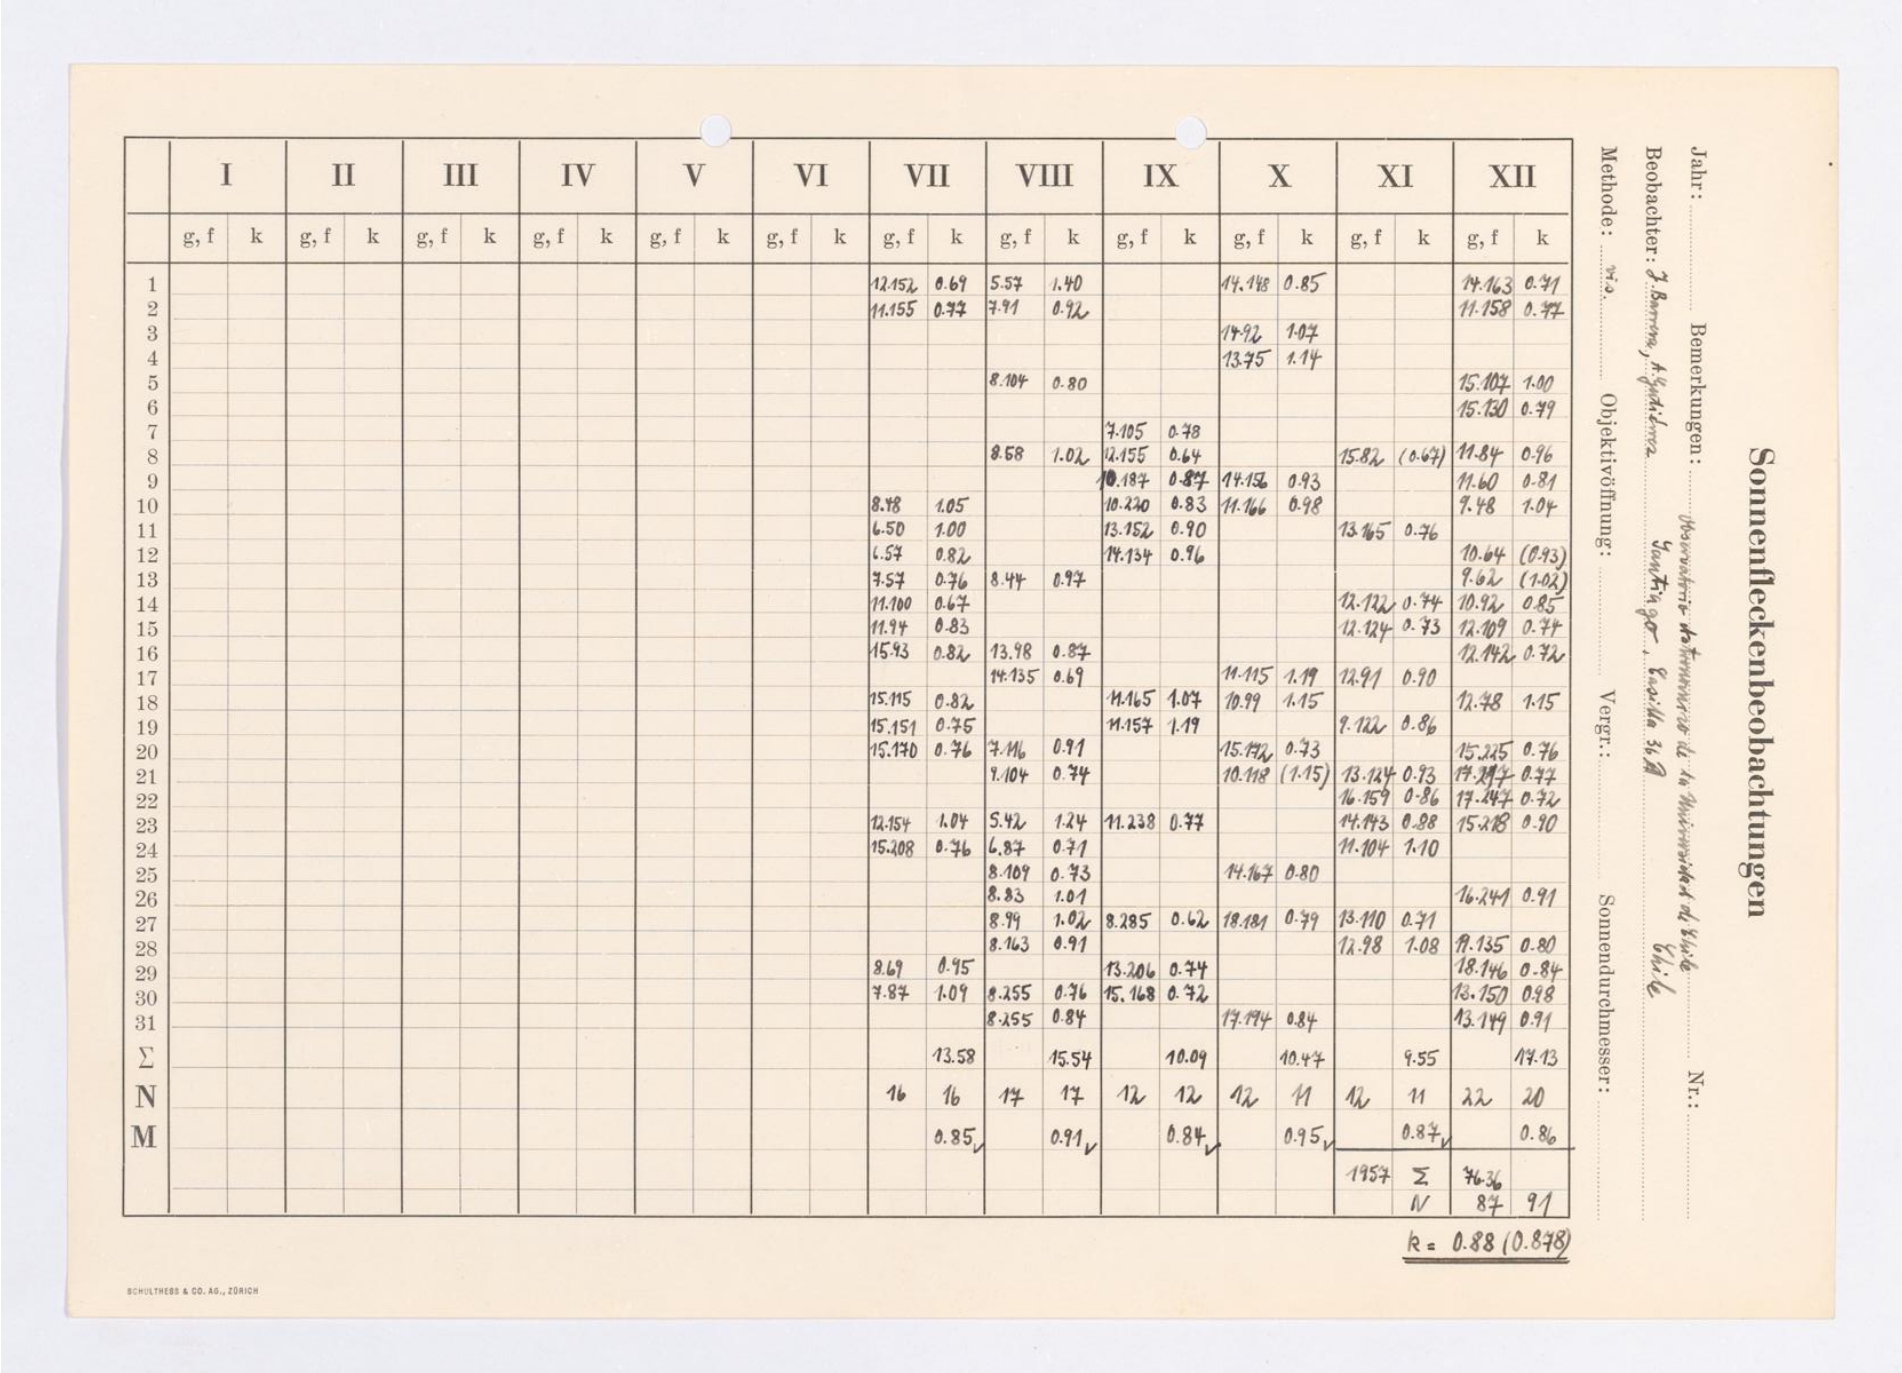 Sonnenfleckenbeobachtungen
Jahr: Bemerkungen: Observatorio Astronomico de la Universidad de Chile Nr.:
Beobachter: J. Barrera, A. Gutiérrez Santiago, Casilla 36 D Chile
Methode: vis. Objektivöffnung: Vergr.: Sonnendurchmesser:
I II III IV V VI VII VIII IX X XI XII
g, f k g, f k g, f k g, f k g, f k g, f k g, f k g, f k g, f k g, f k g, f k g, f k
1 12.152 0.69 5.57 1.40 14.148 0.85 14.163 0.71
2 11.155 0.77 7.91 0.92 11.158 0.77
3 14.92 1.07
4 13.75 1.14
5 8.104 0.80 15.107 1.00
6 15.130 0.79
7 7.105 0.78
8 8.58 1.02 12.155 0.64 15.82 (0.67) 11.84 0.96
9 10.187 0.87 14.156 0.93 11.60 0.81
10 8.48 1.05 10.220 0.83 11.166 0.98 9.48 1.04
11 6.50 1.00 13.152 0.90 13.165 0.76
12 6.57 0.82 14.134 0.96 10.64 (0.93)
13 7.57 0.76 8.44 0.97 9.62 (1.02)
14 11.100 0.67 12.122 0.74 10.92 0.85
15 11.94 0.83 12.124 0.73 12.109 0.74
16 15.93 0.82 13.98 0.87 12.142 0.72
17 14.135 0.69 11.115 1.19 12.91 0.90
18 15.115 0.82 11.165 1.07 10.99 1.15 12.78 1.15
19 15.151 0.75 11.157 1.19 9.122 0.86
20 15.170 0.76 7.116 0.91 15.192 0.73 15.225 0.76
21 9.104 0.74 10.118 (1.15) 13.124 0.93 17.217 0.77
22 16.159 0.86 17.247 0.72
23 12.154 1.04 5.42 1.24 11.238 0.77 14.143 0.88 15.218 0.90
24 15.208 0.76 6.87 0.71 11.104 1.10
25 8.109 0.73 14.167 0.80
26 8.83 1.01 16.241 0.91
27 8.99 1.02 8.285 0.62 18.181 0.79 13.110 0.71
28 8.163 0.91 12.98 1.08 19.135 0.80
29 8.69 0.95 13.206 0.74 18.146 0.84
30 7.87 1.09 8.255 0.76 15.168 0.72 13.150 0.98
31 8.255 0.84 17.194 0.84 13.149 0.91
Σ 13.58 15.54 10.09 10.47 9.55 17.13
N 16 16 17 17 12 12 12 11 12 11 22 20
M 0.85 0.91 0.84 0.95 0.87 0.86
1957 Σ 76.36
N 87 91
k = 0.88 (0.878)
SCHULTHESS & CO. AG., ZÜRICH